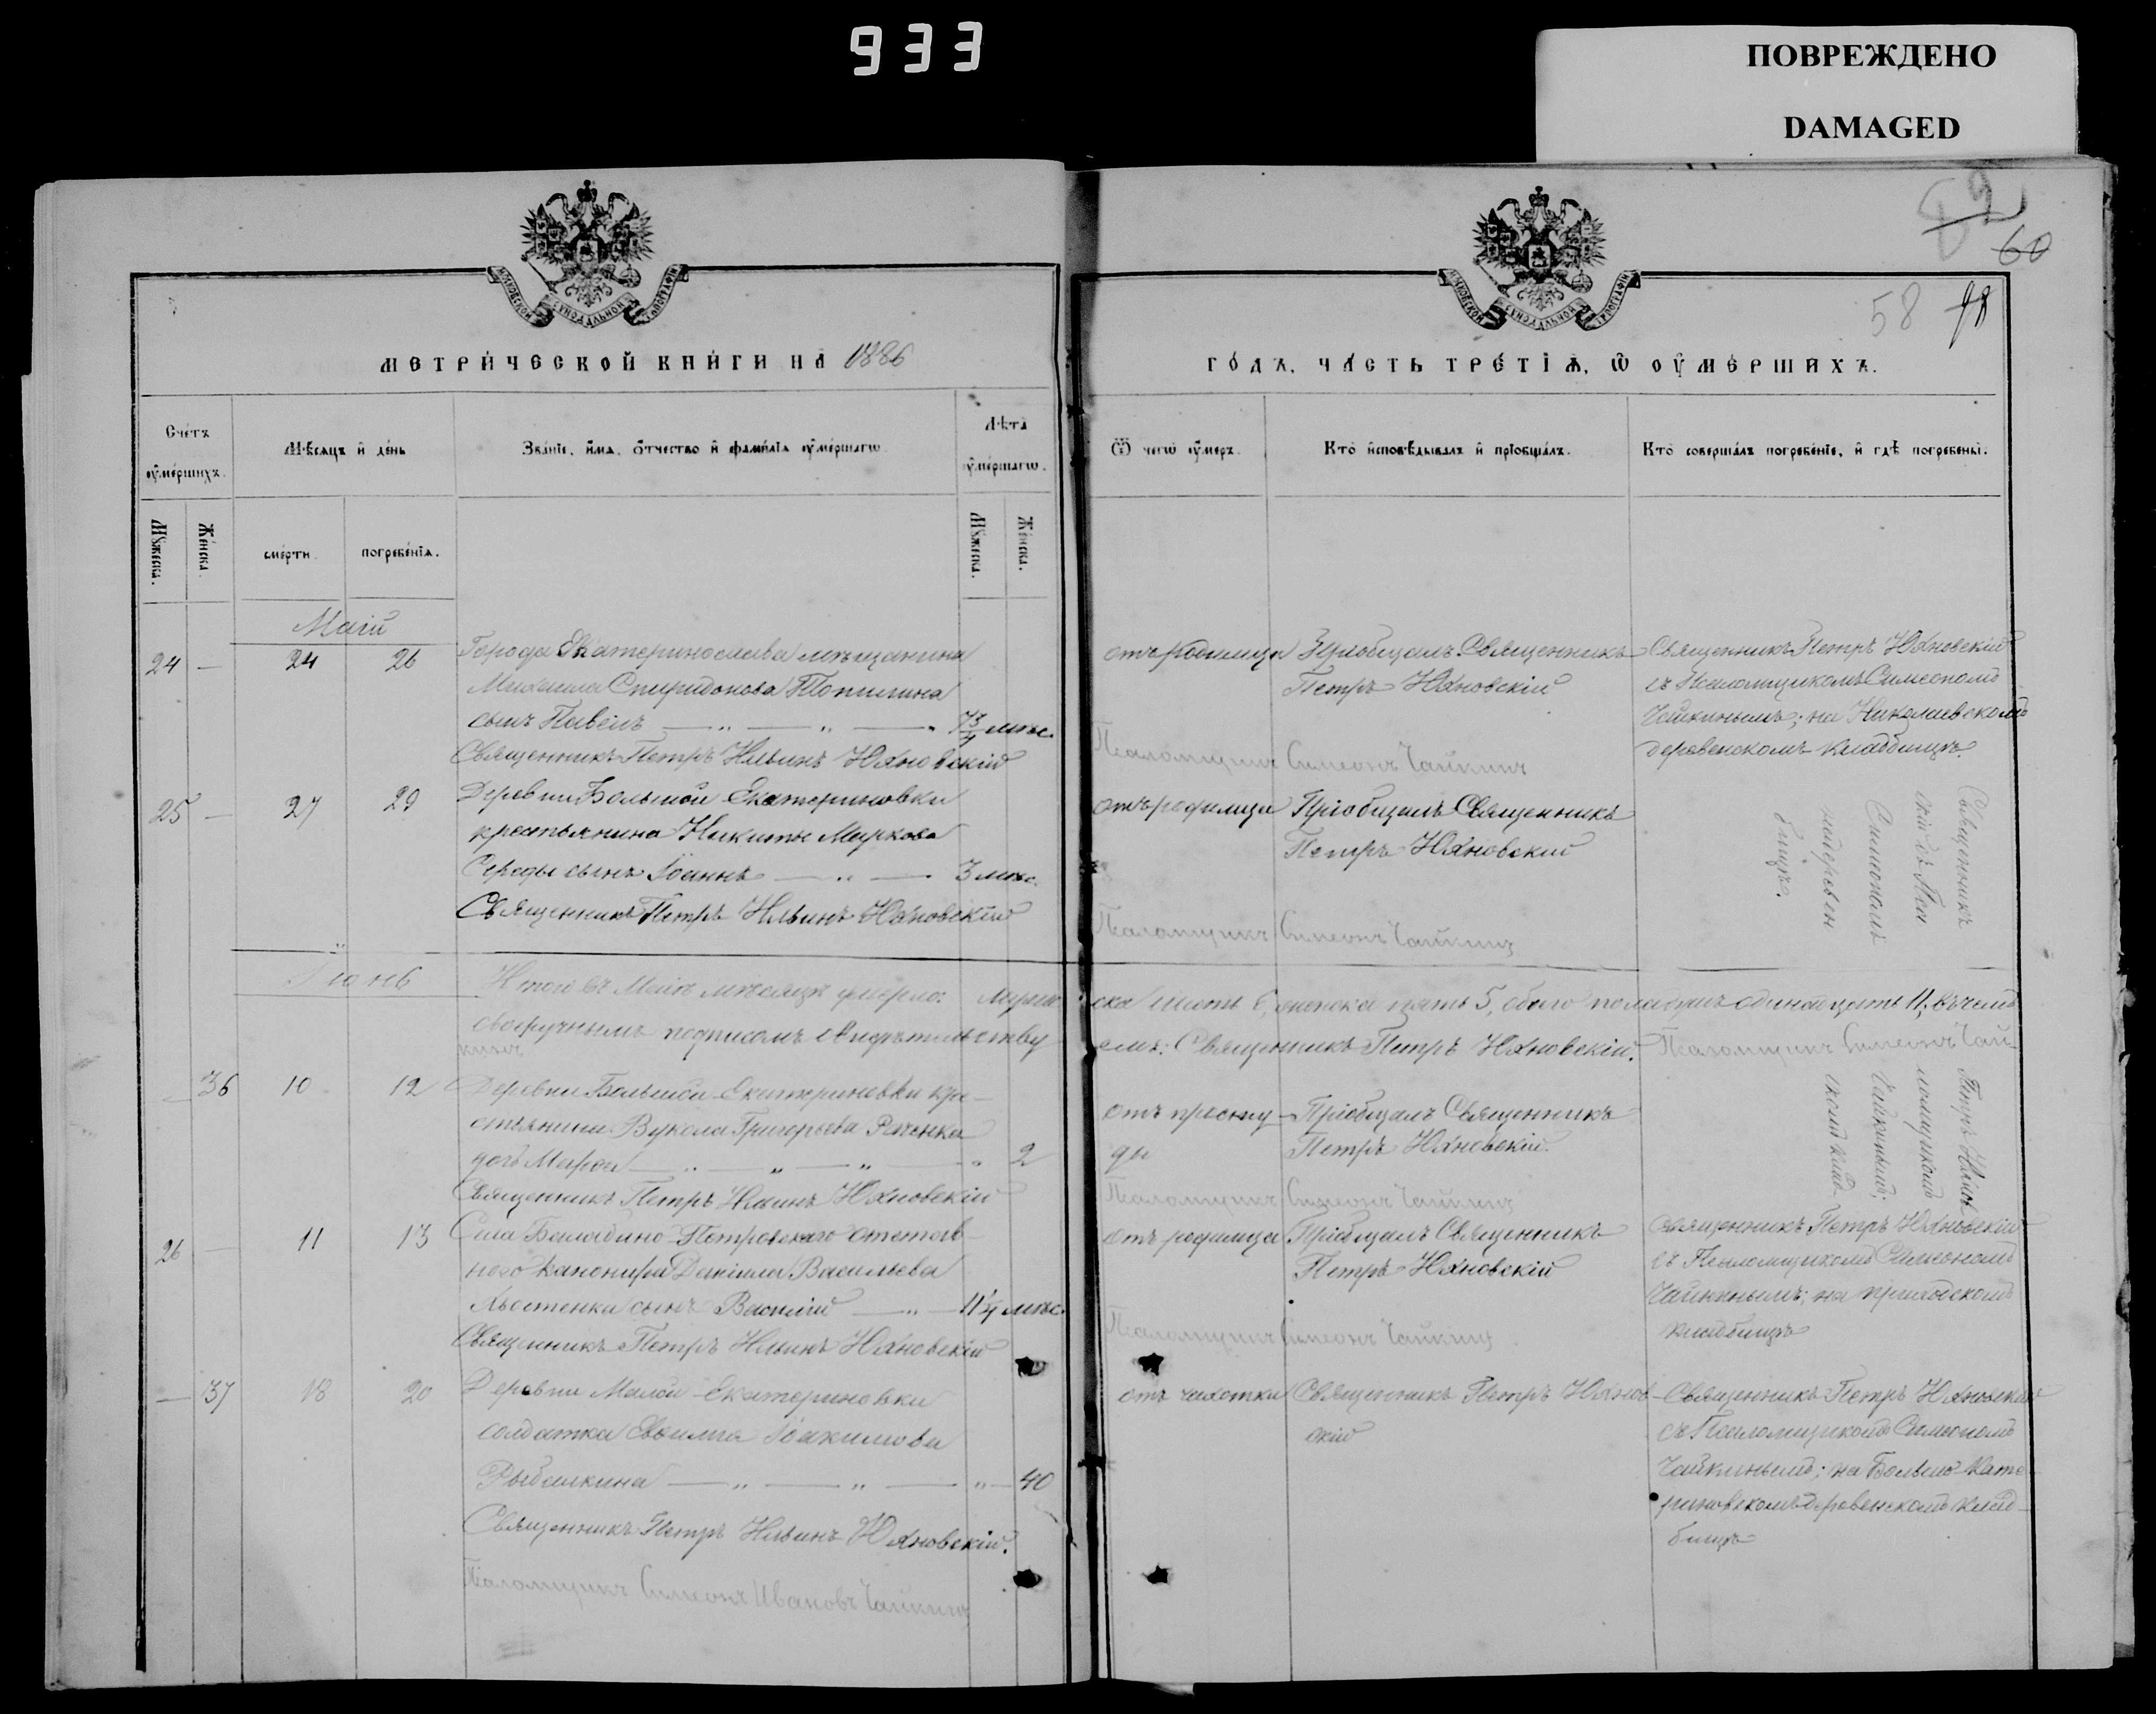 933
ПОВРЕЖДЕНО
DAMAGED
60
58
МЕТРИЧЕСКОЙ КНИГИ НА 1886
ГОДЪ, ЧАСТЬ ТРЕТІѦ, Ѿ ОУМЕРШИХЪ.
Счетъ оумершихъ.
Мѣсяцъ и день
Званіе, имя, отчество и фамилія оумершагѡ
Лѣта оумершагѡ.
Ѿ чегѡ оумеръ.
Кто исповѣдывалъ и пріобщалъ.
Кто совершалъ погребеніе, и гдѣ погребены.
Мужеска.
Женска.
смерти.
погребенія.
Мужеска.
Женска.
Маій
24 — 24 26
Города Екатеринослава мѣщанина
Михаила Спиридонова Топилина
сынъ Павелъ — „ — „ — „ мѣс.
Священникъ Петръ Ильинъ Юхновскій
отъ родимца
Пріобщалъ Священникъ
Петръ Юхновскій
Псаломщикъ Симеонъ Чайкинъ
Священникъ Петръ Юхновскій
съ Псаломщикомъ Симеономъ
Чайкинымъ; на Николаевскомъ
деревенскомъ кладбищѣ.
25 — 27 29
Деревни Большой Екатериновки
крестьянина Никиты Маркова
Середы сынъ Іоаннъ — „ — 3 мѣс.
Священникъ Петръ Ильинъ Юхновскій
отъ родимца
Пріобщалъ Священникъ
Петръ Юхновскій
Псаломщикъ Симеонъ Чайкинъ
Священникъ Петръ Юхнов
скій съ Псаломщикомъ
Симеономъ Чайкинымъ;
на деревенскомъ клад-
бищѣ.
Іюнь
Итого въ Маіѣ мѣсяцѣ умерло: мужеска шесть 6, женска пять 5, обоего пола душъ одинадцать 11, въ чемъ
своеручнымъ подписомъ свидѣтельствуемъ: Священникъ Петръ Юхновскій. Псаломщикъ Симеонъ Чай-
кинъ
— 36 10 12
Деревни Большой Екатериновки кре-
стьянина Вукола Григорьева
дочь Марѳа — „ — „ — „ — „ 2
Священникъ Петръ Ильинъ Юхновскій
отъ просту-
ды
Пріобщалъ Священникъ
Петръ Юхновскій.
Псаломщикъ Симеонъ Чайкинъ
26 — 11 13
Села Балабино-Петровскаго отстав-
наго канонира Даніила Васильева
сынъ Василій — „ — мѣс.
Священникъ Петръ Ильинъ Юхновскій
отъ родимца
Пріобщалъ Священникъ
Петръ Юхновскій
Псаломщикъ Симеонъ Чайкинъ
Священникъ Петръ Юхновскій
съ Псаломщикомъ Симеономъ
Чайкинымъ; на приходскомъ
кладбищѣ
— 37 18 20
Деревни Малой Екатериновки
солдатка Евѳимія Іоакимова
Рыбалкина — „ — „ — „ — 40
Священникъ Петръ Ильинъ Юхновскій.
Псаломщикъ Симеонъ Ивановъ Чайкинъ
отъ чахотки
Священникъ Петръ Юхнов-
скій
Священникъ Петръ Юхновскій
съ Псаломщикомъ Симеономъ
Чайкинымъ; на Больше-Кате-
риновскомъ деревенскомъ клад-
бищѣ